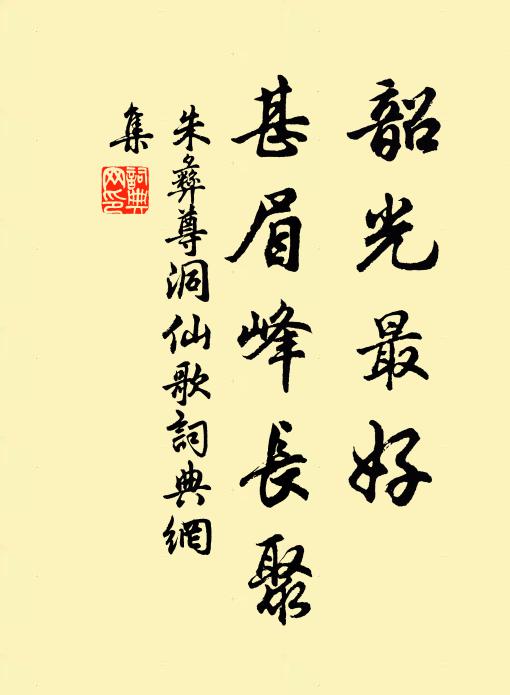 韶光最好
甚眉峰長聚
朱彝尊洞仙歌詞典網
集
詞典
网印